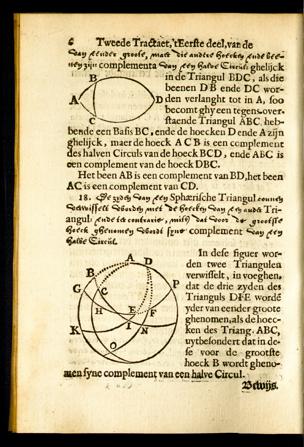 6 Tweede Tractaet, 'tEerste deel, van de
van eender groote, maer die andere hoecken ende bee-
nen zijn complementa van een halve Circul: ghelijck
in de Triangul BDC, als die
beenen DB ende DC wor-
den verlanght tot in A, soo
becomt ghy een tegen-over-
staende Triangul ABC heb-
bende een Basis BC, ende de hoecken D ende A zijn
ghelijck, maer de hoeck ACB is een complement
des halven Circuls van de hoeck BCD, ende ABC is
een complement van de hoeck DBC.
Het been AB is een complement van BD, het been
AC is een complement van CD.
18. De zyden van een Sphærische Triangul connen
verwisselt worden met de hoecken van een ander Tri-
angul ende te contrarie, mits dat voor de grootste
hoeck ghenomen wordt syne complement van een
halve Circul.
In dese figuer wor-
den twee Triangulen
verwisselt, in voeghen,
dat de drie zyden des
Trianguls DFE wordē
yder van eender groote
ghenomen, als de hoec-
ken des Triang. ABC,
uytbesondert dat in de-
se voor de grootste
hoeck B wordt gheno-
men syne complement van een halve Circul.
Bewijs.
B
A D
C
A D
B P
G C
H E F
K I N
O